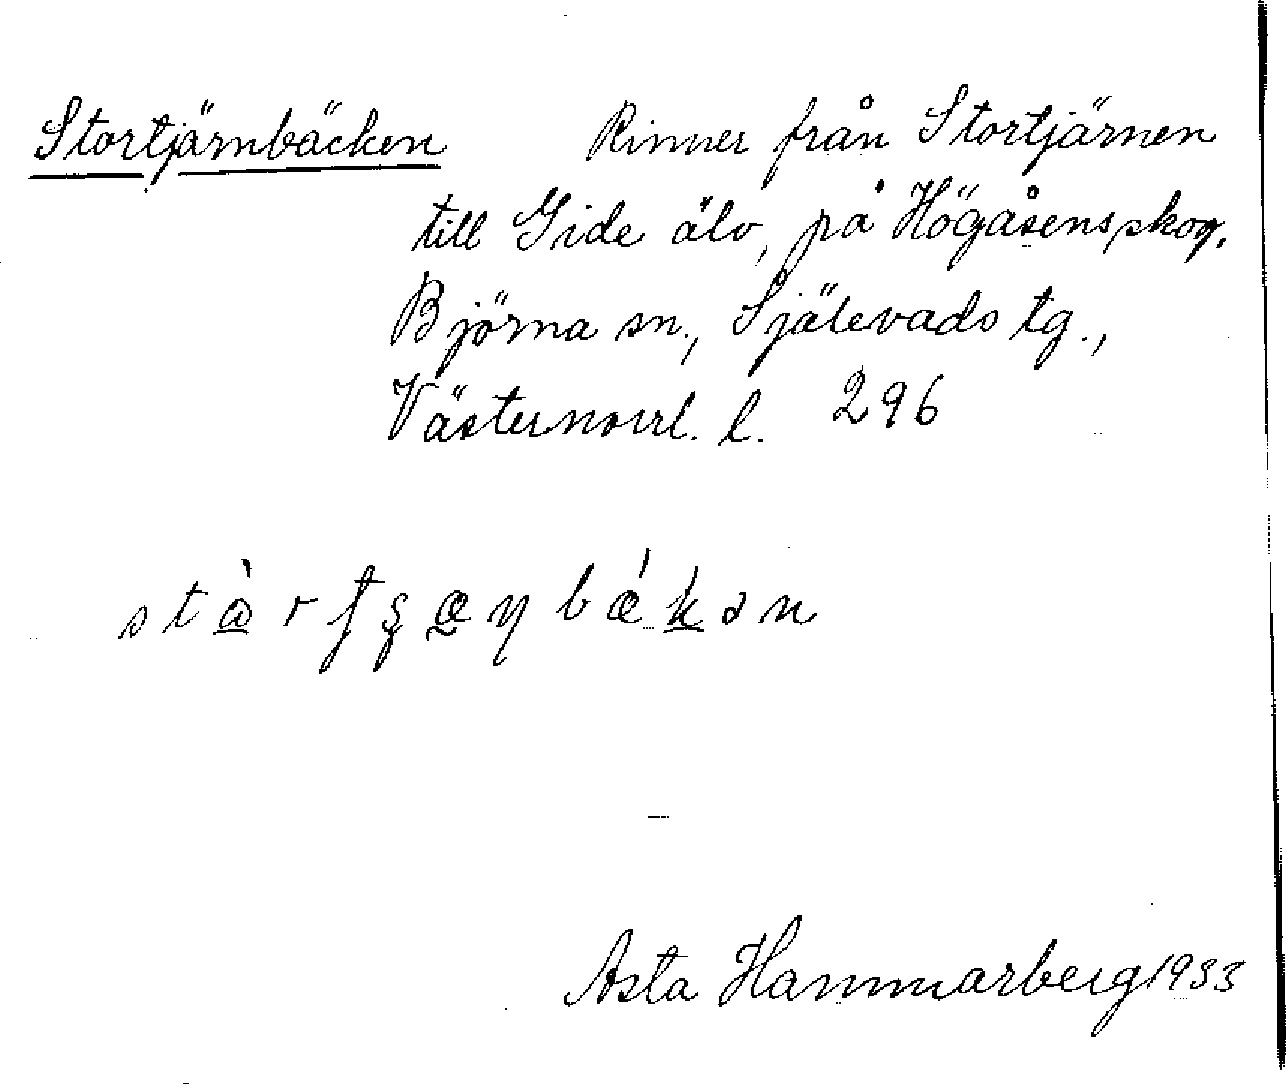 Stortjärnbäcken Rinner från Stortjärnen
till Gide älv, på Högåsens skog,
Björna sn., Själevads tg.,
Västernorrl. l. 296
Asta Hammarberg 1933